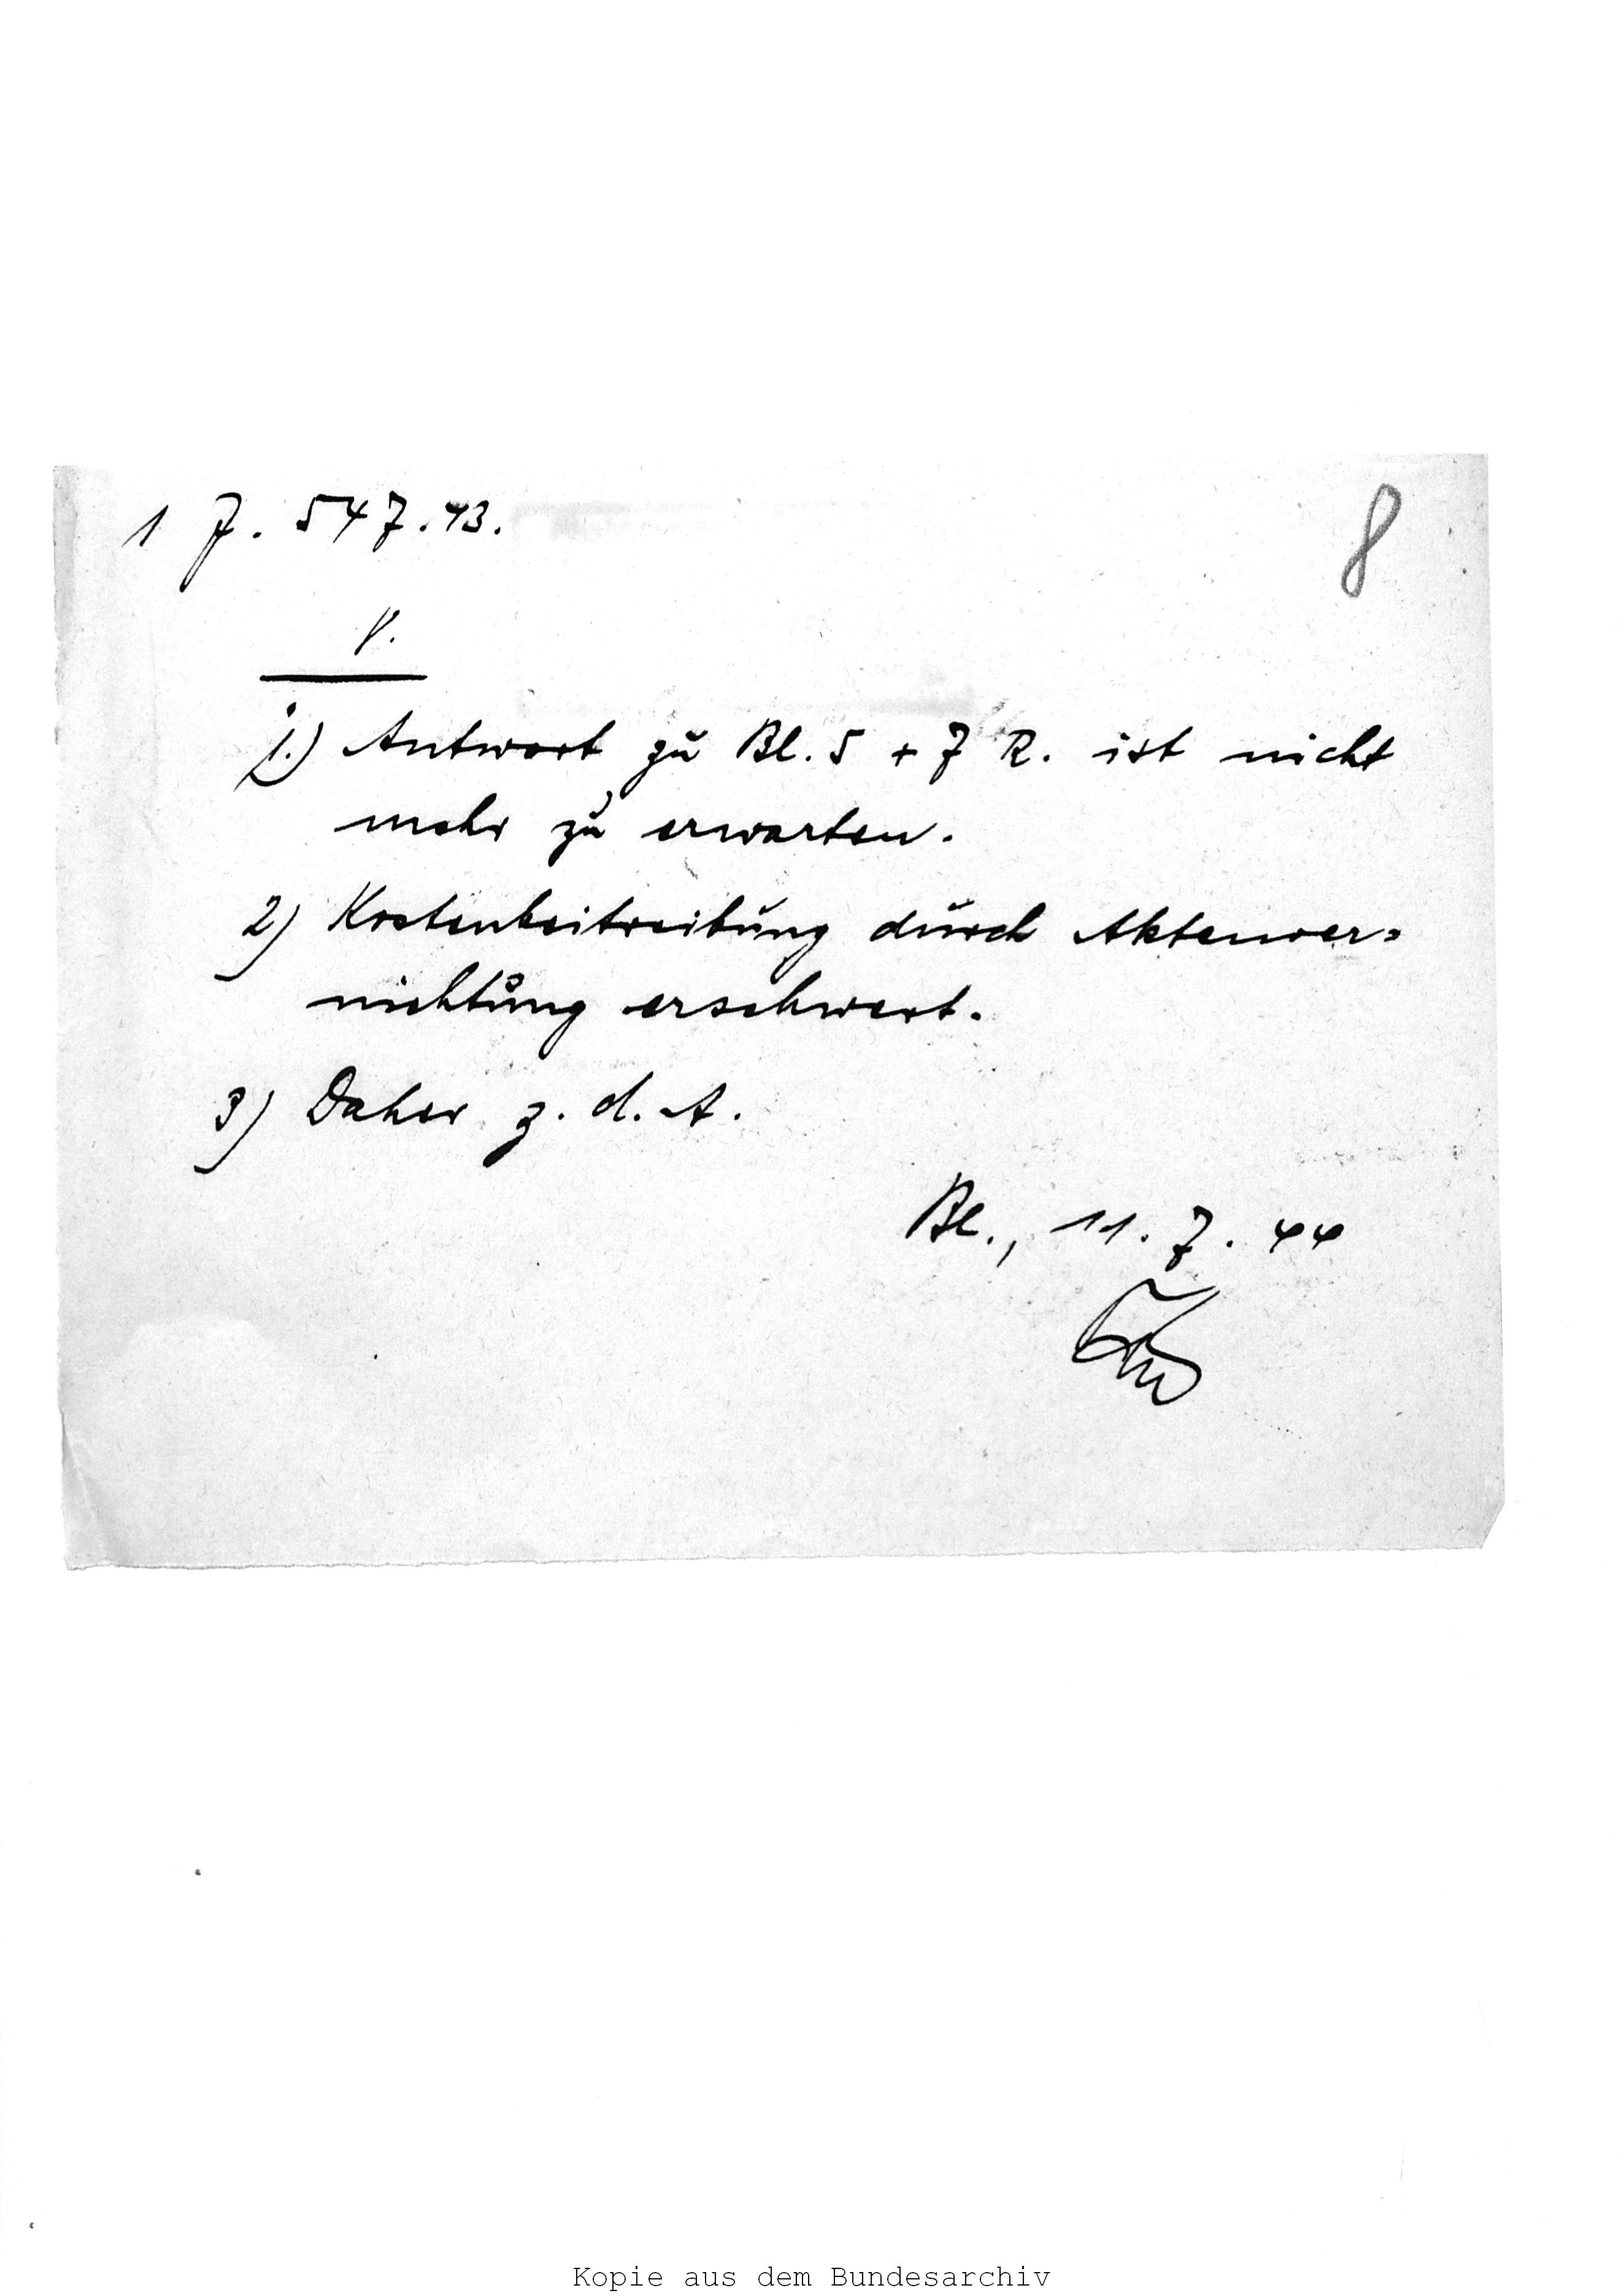 1 J. 547.43.
8
V.
1.) Antwort zu Bl. 5 + 7 R. ist nicht
mehr zu erwarten.
2) Kostenbeitreibung durch Aktenver=
nichtung erschwert.
3) Daher z. d. A.
Bl., 11. 7. 44
Kopie aus dem Bundesarchiv